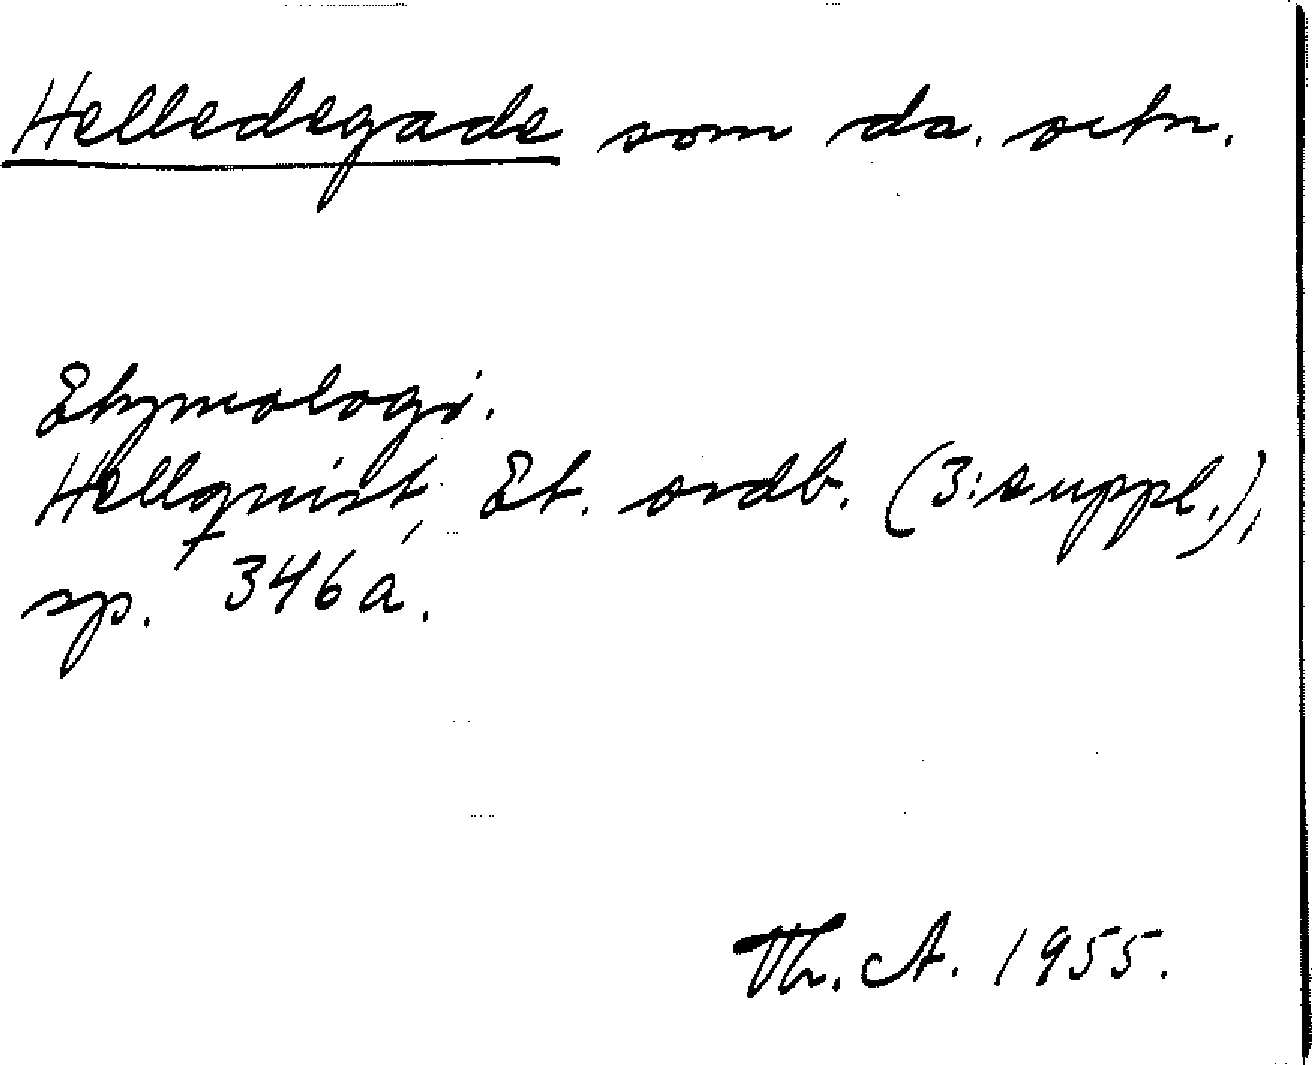 Helledegade som da. ortn.
Etymologi.
Hellquist, Et. ordb. (3: suppl.),
sp. 346a.
Th. A. 1955.